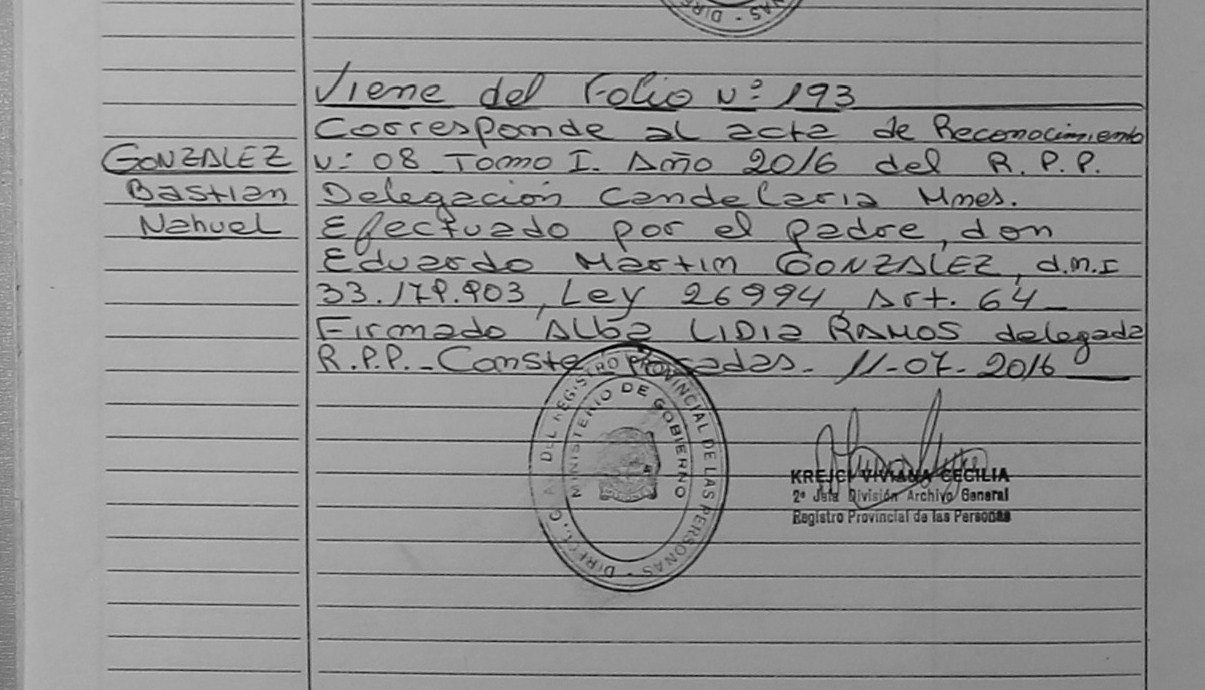 Viene del Folio Nº 193
Corresponde al acta de Reconocimiento
GONZALEZ
Bastian
Nahuel
Nº 08 Tomo I. Año 2016 del R.P.P.
Delegación Candelaria Mnes.
Efectuado por el padre, don
Eduardo Martin GONZALEZ, d.n.I
33.179.903, Ley 26994, Art. 64
Firmado Alba LIDIA RAMOS delegada
R.P.P. - Conste Posadas. 11-07-2016
DEL REGISTRO PROVINCIAL DE LAS PERSONAS - DIREC.
MINISTERIO DE GOBIERNO
KREJCI VIVIANA CECILIA
2º Jefa División Archivo General
Registro Provincial de las Personas